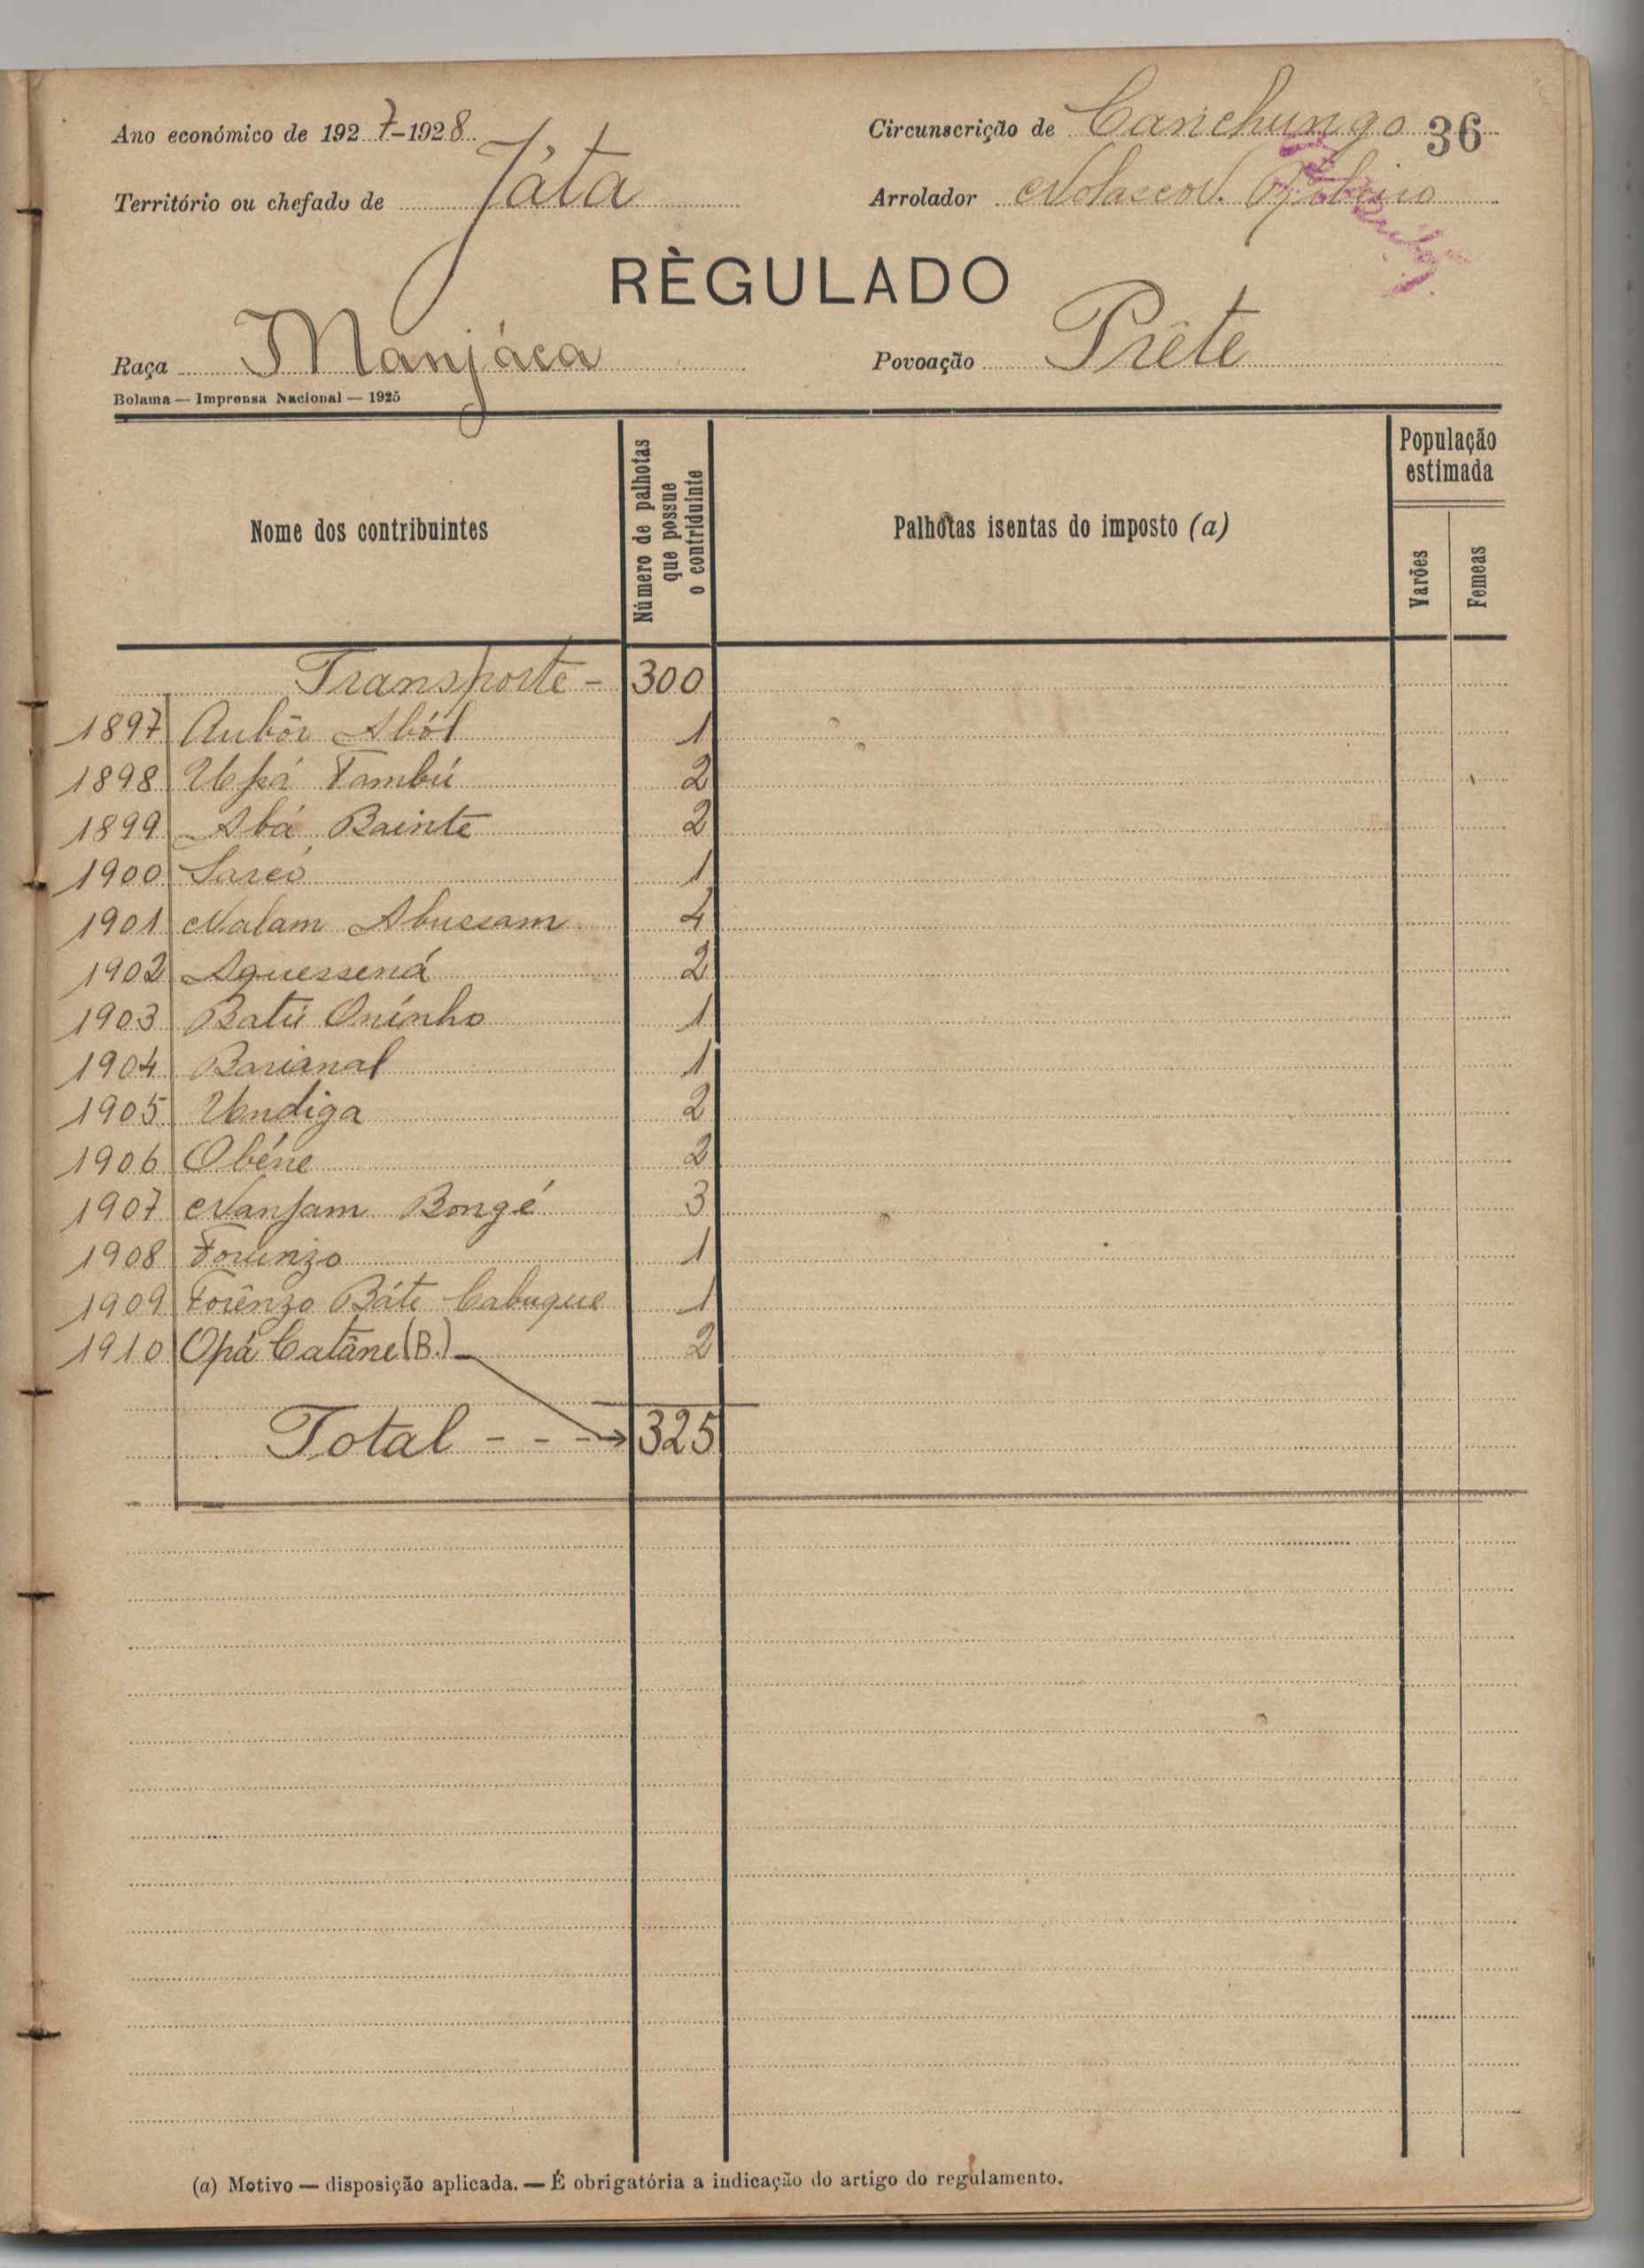 Ano económico de 1927-1928
Circunscrição de Canchungo 36
Território ou chefado de Játa
Arrolador Nolasco
RÈGULADO
Raça Manjáca
Povoação Prête
Bolama — Imprensa Nacional — 1925
Nome dos contribuintes
Número de palhotas
que possue
o contriduinte
Palhotas isentas do imposto (a)
População
estimada
Varões
Femeas
Transporte - 300
1897 Aubôr Aból 1
1898 Upá Tambú 2
1899 Abá Bainte 2
1900 1
1901 Nalam Abussam 4
1902 Aquessená 2
1903 Batú Oninho 1
1904 Barianal 1
1905 Undiga 2
1906 Obéne 2
1907 Nanfam Bongé 3
1908 Forenzo 1
1909 Forênzo Báte Cabuque 1
1910 Opá Catâne (B.) 2
Total - - - 325
(a) Motivo — disposição aplicada. — É obrigatória a indicação do artigo do regulamento.